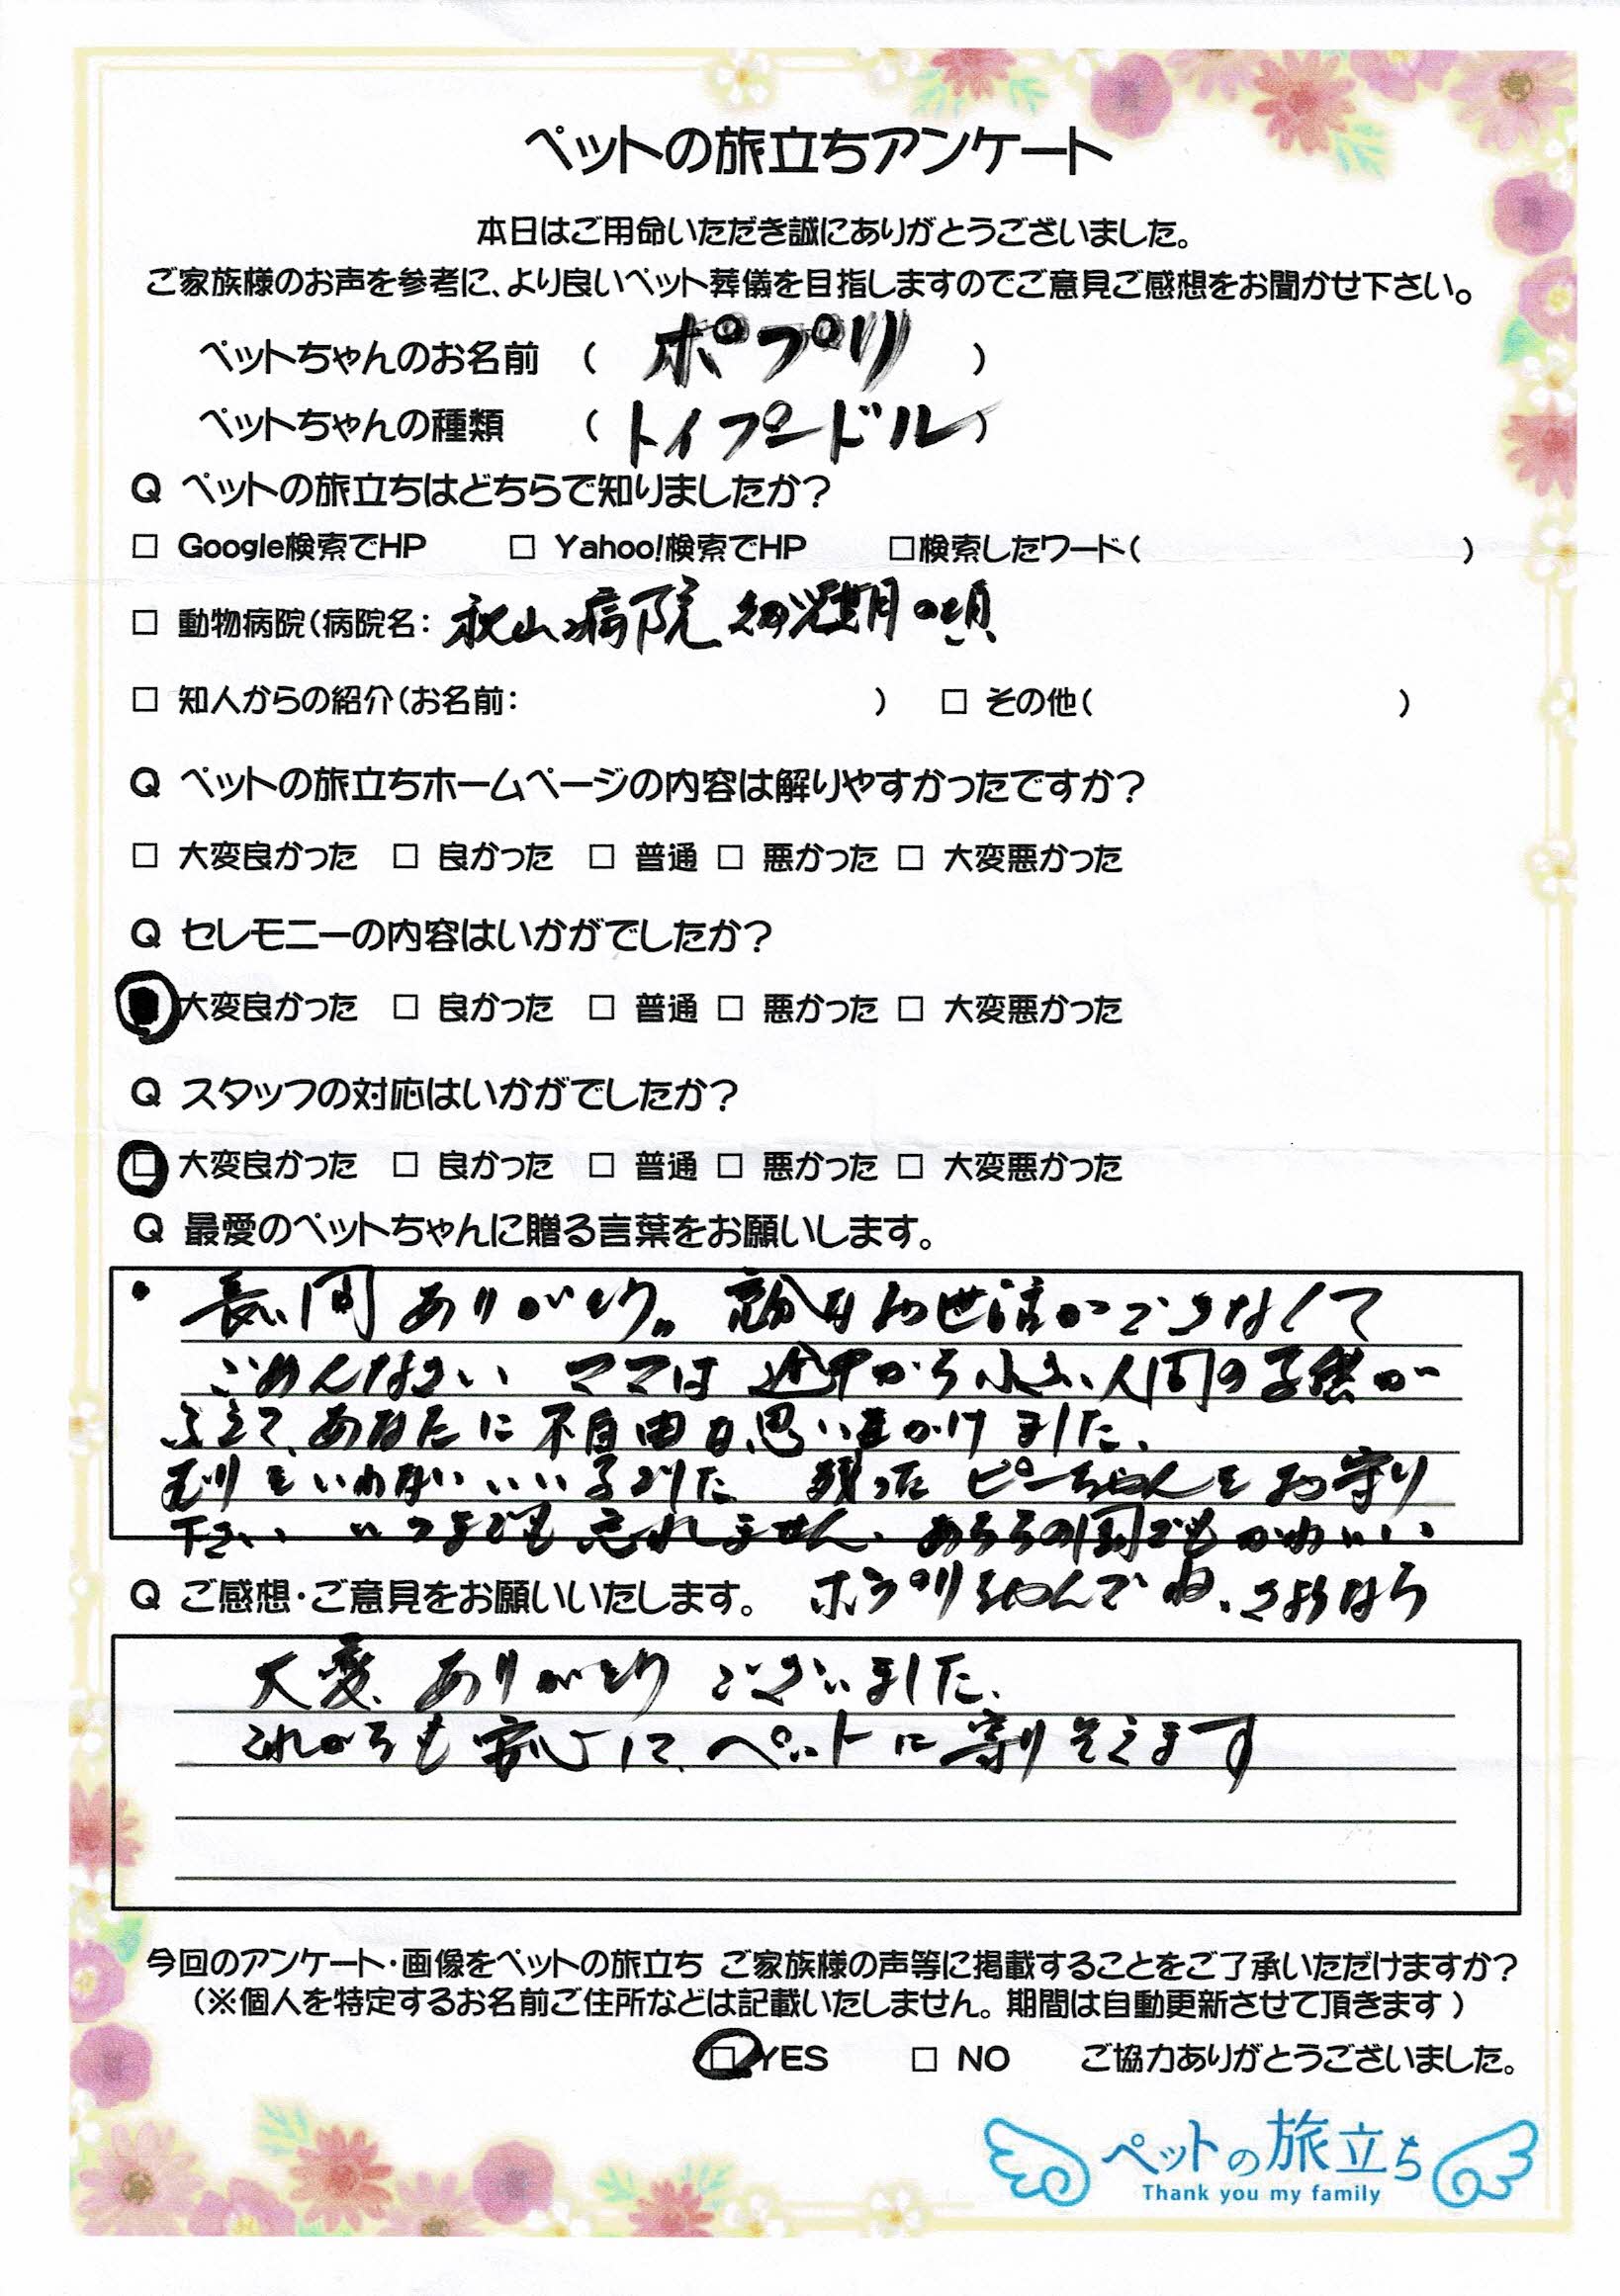 ペットの旅立ちアンケート
本日はご用命いただき誠にありがとうございました。
ご家族様のお声を参考に、より良いペット葬儀を目指しますのでご意見ご感想をお聞かせ下さい。
ペットちゃんのお名前 ( ポプリ )
ペットちゃんの種類 ( トイプードル )
Q ペットの旅立ちはどちらで知りましたか?
□ Google検索でHP □ Yahoo!検索でHP □検索したワード( )
□ 動物病院(病院名: 秋山病院 期の頃
□ 知人からの紹介(お名前: ) □ その他( )
Q ペットの旅立ちホームページの内容は解りやすかったですか?
□ 大変良かった □ 良かった □ 普通 □ 悪かった □ 大変悪かった
Q セレモニーの内容はいかがでしたか?
■ 大変良かった □ 良かった □ 普通 □ 悪かった □ 大変悪かった
Q スタッフの対応はいかがでしたか?
□ 大変良かった □ 良かった □ 普通 □ 悪かった □ 大変悪かった
Q 最愛のペットちゃんに贈る言葉をお願いします。
・長い間ありがとう。充分なお世話ができなくて
ごめんなさい ママは途中から小さい人間の子供が
ふえて、あなたに不自由な思いをかけました、
むりをいわないいい子でした 残ったピーちゃんをお守り
下さい いつまでも忘れません、あちらの国でもかわいい
ポプリちゃんでね、さようなら
Q ご感想・ご意見をお願いいたします。
大変、ありがとうございました、
これからも安心して、ペットに寄りそえます
今回のアンケート・画像をペットの旅立ち ご家族様の声等に掲載することをご了承いただけますか?
(※個人を特定するお名前ご住所などは記載いたしません。期間は自動更新させて頂きます)
□ YES □ NO ご協力ありがとうございました。
ペットの旅立ち
Thank you my family